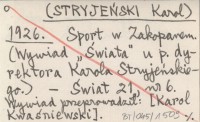 (STRYJEŃSKI Karol)
1926. Sport w Zakopanem.
(Wywiad „Świata" u p. dy-
rektora Karola Stryjeńskie-
go.) - Świat 21, nr 6.
Wywiad przeprowadził: [Karol
Kwaśniewski].